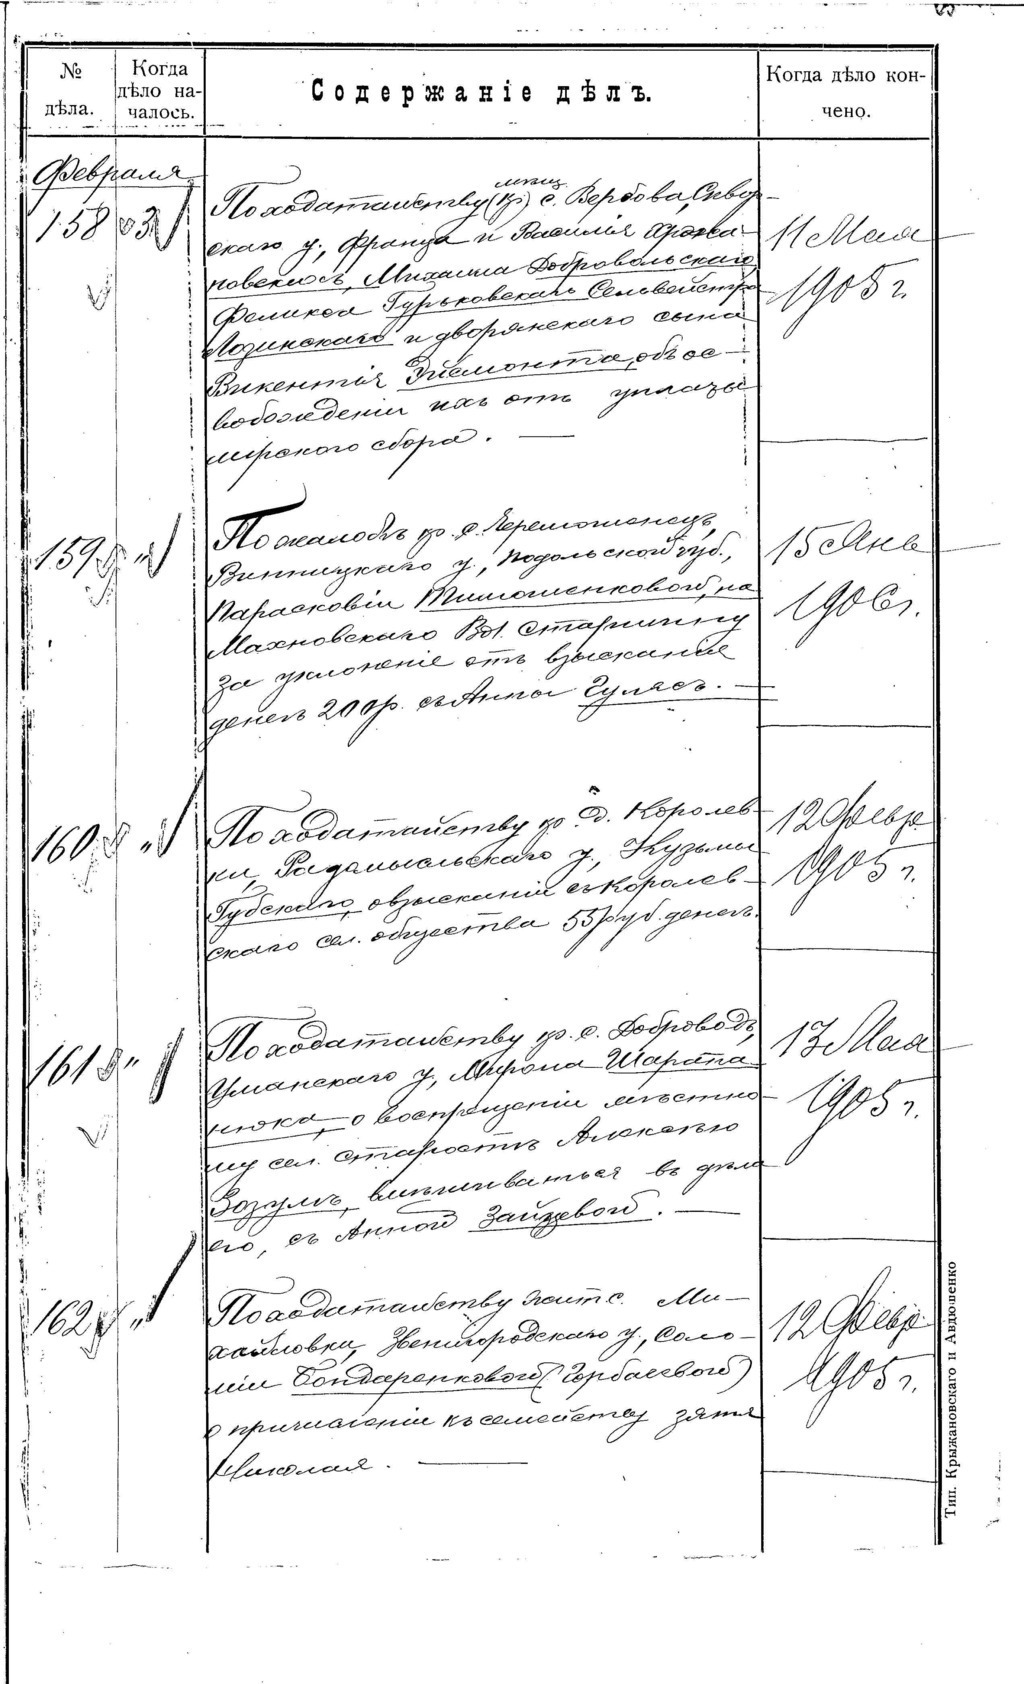 № дѣла.
Когда дѣло началось.
Содержаніе дѣлъ.
Когда дѣло кончено.
Февраля
158 3
По ходатайству (кр) мѣщ. с. Вербова, Сквир-
скаго у., Франца и Василія
Михаила Добровольскаго,
Феликса Гурьковскаго Сельвестра
Лозинскаго и дворянскаго сына
Викентія Эйсмонта, объ ос-
вобожденіи ихъ отъ уплаты
мірского сбора. —
11 Мая
1905 г.
159 "
По жалобѣ кр. с.
Винницкаго у., Подольской губ.,
Парасковіи Тимошенковой, на
Махновскаго Вол. Старшину
за уклоненіе отъ взысканія
денегъ 200 р. съ Анны Гулясъ. —
15 Янв
1906 г.
160 "
По ходатайству кр. д. Королев-
ки, Радомысльскаго у., Кузьмы
Губскаго, о взысканіи съ Королев-
скаго сел. общества 55 руб. денегъ.
12 Февр
1905 г.
161 "
По ходатайству кр. с. Доброводъ,
Уманскаго у., Мирона Шарапа-
нюка, о воспрещеніи мѣстно-
му сел. старостѣ Алексѣю
Зозулѣ, вмѣшиваться въ дѣла
его, съ Анной Зайцевой. —
13 Мая
1905 г.
162 "
По ходатайству жит. с. Ми-
хайловки, Звенигородскаго у., Соло-
міи Бондаренковой (Горбаевой)
о причисленіи къ семейству зятя
Николая. —
12 Февр
1905 г.
Тип. Крыжановскаго и Авдюшенко